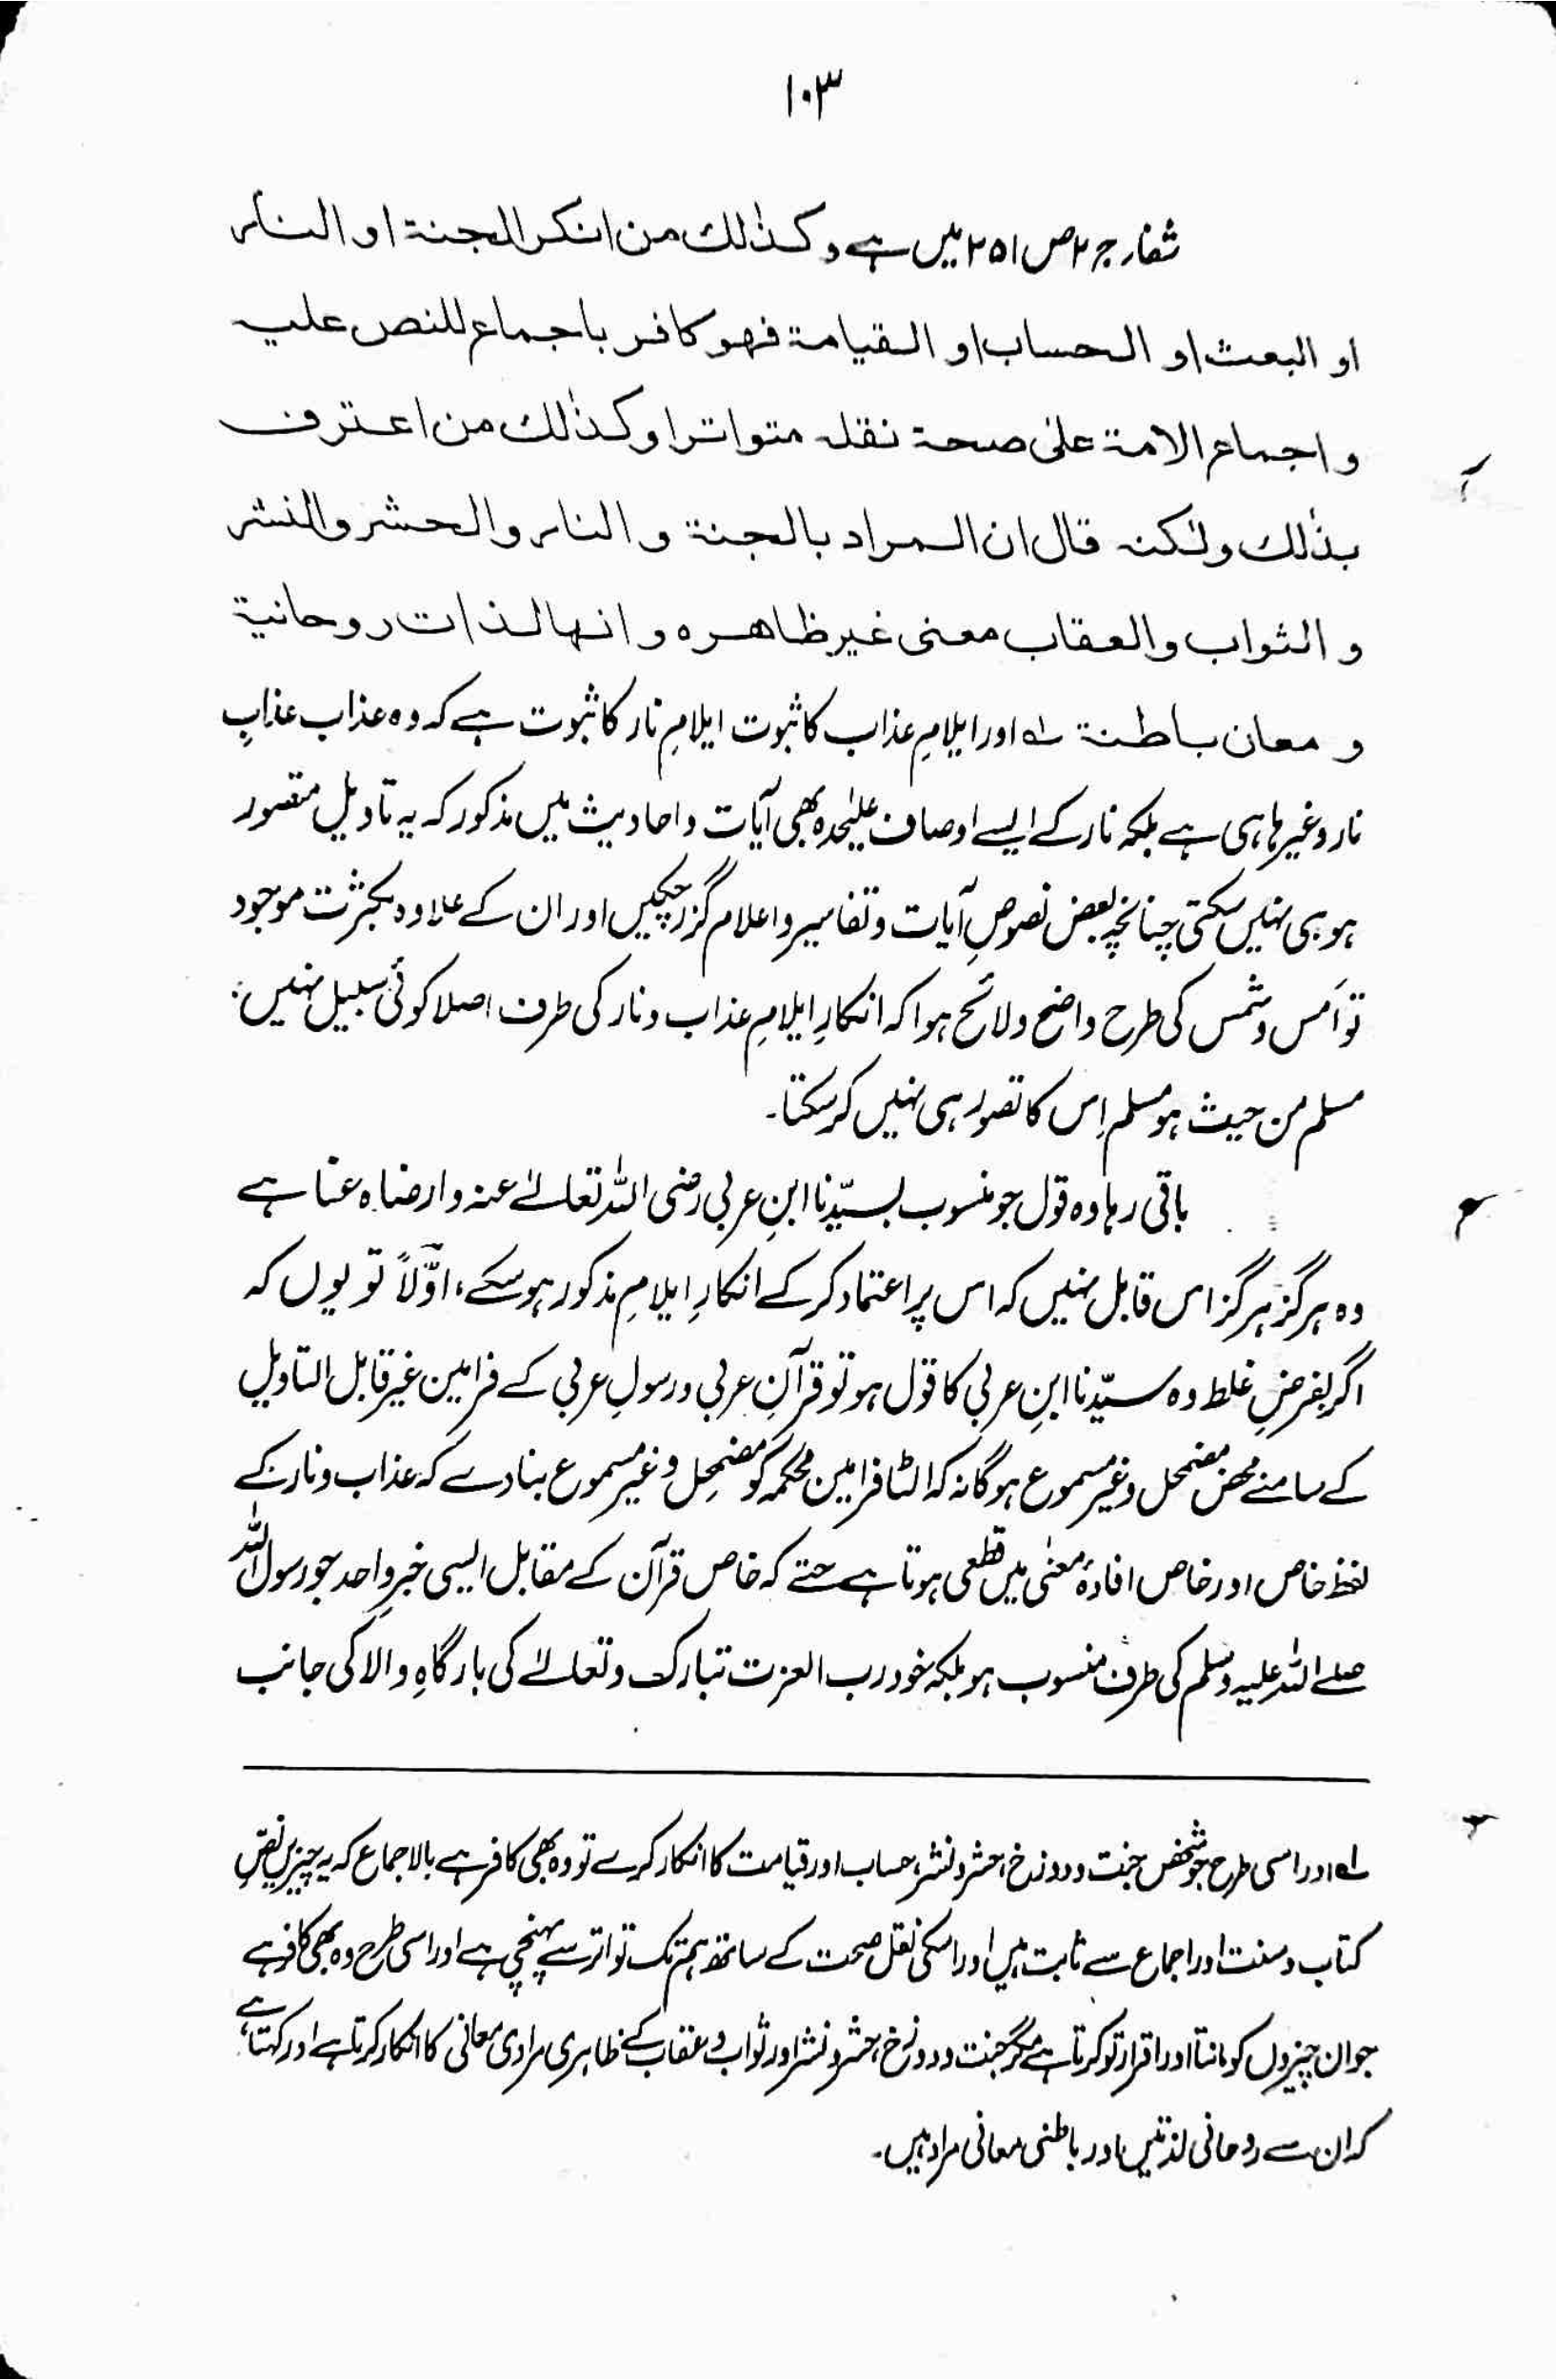 ۱۰۳
شفار ج ۲ ص ۲۵۱ میں ہے و کذٰلك من انکر الجنة او النار
او البعث او الحساب او القیامة فھو کافر باجماع للنص علیہ
و اجماع الامة علیٰ صحة نقلہ متواترا و کذٰلك من اعترف
بذٰلك ولٰکنہ قال ان المراد بالجنة و النار و الحشر و النشر
و الثواب والعقاب معنی غیر ظاھرہ و انھا لذات روحانیة
و معان باطنة ؎ اور ایلامِ عذاب کا ثبوت ایلامِ نار کا ثبوت ہے کہ وہ عذاب عذابِ
نار وغیرہا ہی ہے بلکہ نار کے ایسے اوصاف علیٰحدہ بھی آیات و احادیث میں مذکور کہ یہ تاویل متصور
ہو ہی نہیں سکتی چنانچہ بعض نصوصِ آیات و تفاسیر و اعلام گزر چکیں اور ان کے علاوہ بکثرت موجود
تو اَمس و شمس کی طرح واضح و لائح ہوا کہ انکارِ ایلامِ عذاب و نار کی طرف اصلا کوئی سبیل نہیں؛
مسلم من حیث ہو مسلم اِس کا تصور ہی نہیں کر سکتا۔
باقی رہا وہ قول جو منسوب بسیّدنا ابنِ عربی رضی اللہ تعالےٰ عنہ و ارضاہ عنا ہے
وہ ہرگز ہرگز اس قابل نہیں کہ اس پر اعتماد کر کے انکارِ ایلامِ مذکور ہو سکے، اوّلاً تو یوں کہ
اگر بفرضِ غلط وہ سیّدنا ابنِ عربی کا قول ہو تو قرآنِ عربی و رسولِ عربی کے فرامین غیر قابل التاویل
کے سامنے محض مضمحل و غیر مسموع ہو گا نہ کہ الٹا فرامین محکمہ کو مضمحِل و غیر مسموع بنا دے کہ عذاب و نار کے
لفظ خاص اور خاص افادۂ معنٰی میں قطعی ہوتا ہے حتے کہ خاص قرآن کے مقابل ایسی خبرِ واحد جو رسول اللہ
صلے اللہ علیہ وسلم کی طرف منسوب ہو بلکہ خود رب العزت تبارک وتعالےٰ کی بارگاہِ والا کی جانب
؎ اور اسی طرح جو شخص جنت و دوزخ، حشر و نشر، حساب اور قیامت کا انکار کرے تو وہ بھی کافر ہے بالاجماع کہ یہ چیزیں نصِّ
کتاب و سنت اور اجماع سے ثابت ہیں اور اسکی نقل صحت کے ساتھ ہم تک تواتر سے پہنچی ہے اور اسی طرح وہ بھی کافر ہے
جو ان چیزوں کو مانتا اور اقرار تو کرتا ہے مگر جنت و دوزخ، حشر و نشر اور ثواب و عقاب کے ظاہری مرادی معانی کا انکار کرتا ہے اور کہتا ہے
کہ ان سے روحانی لذتیں اور باطنی معانی مراد ہیں۔